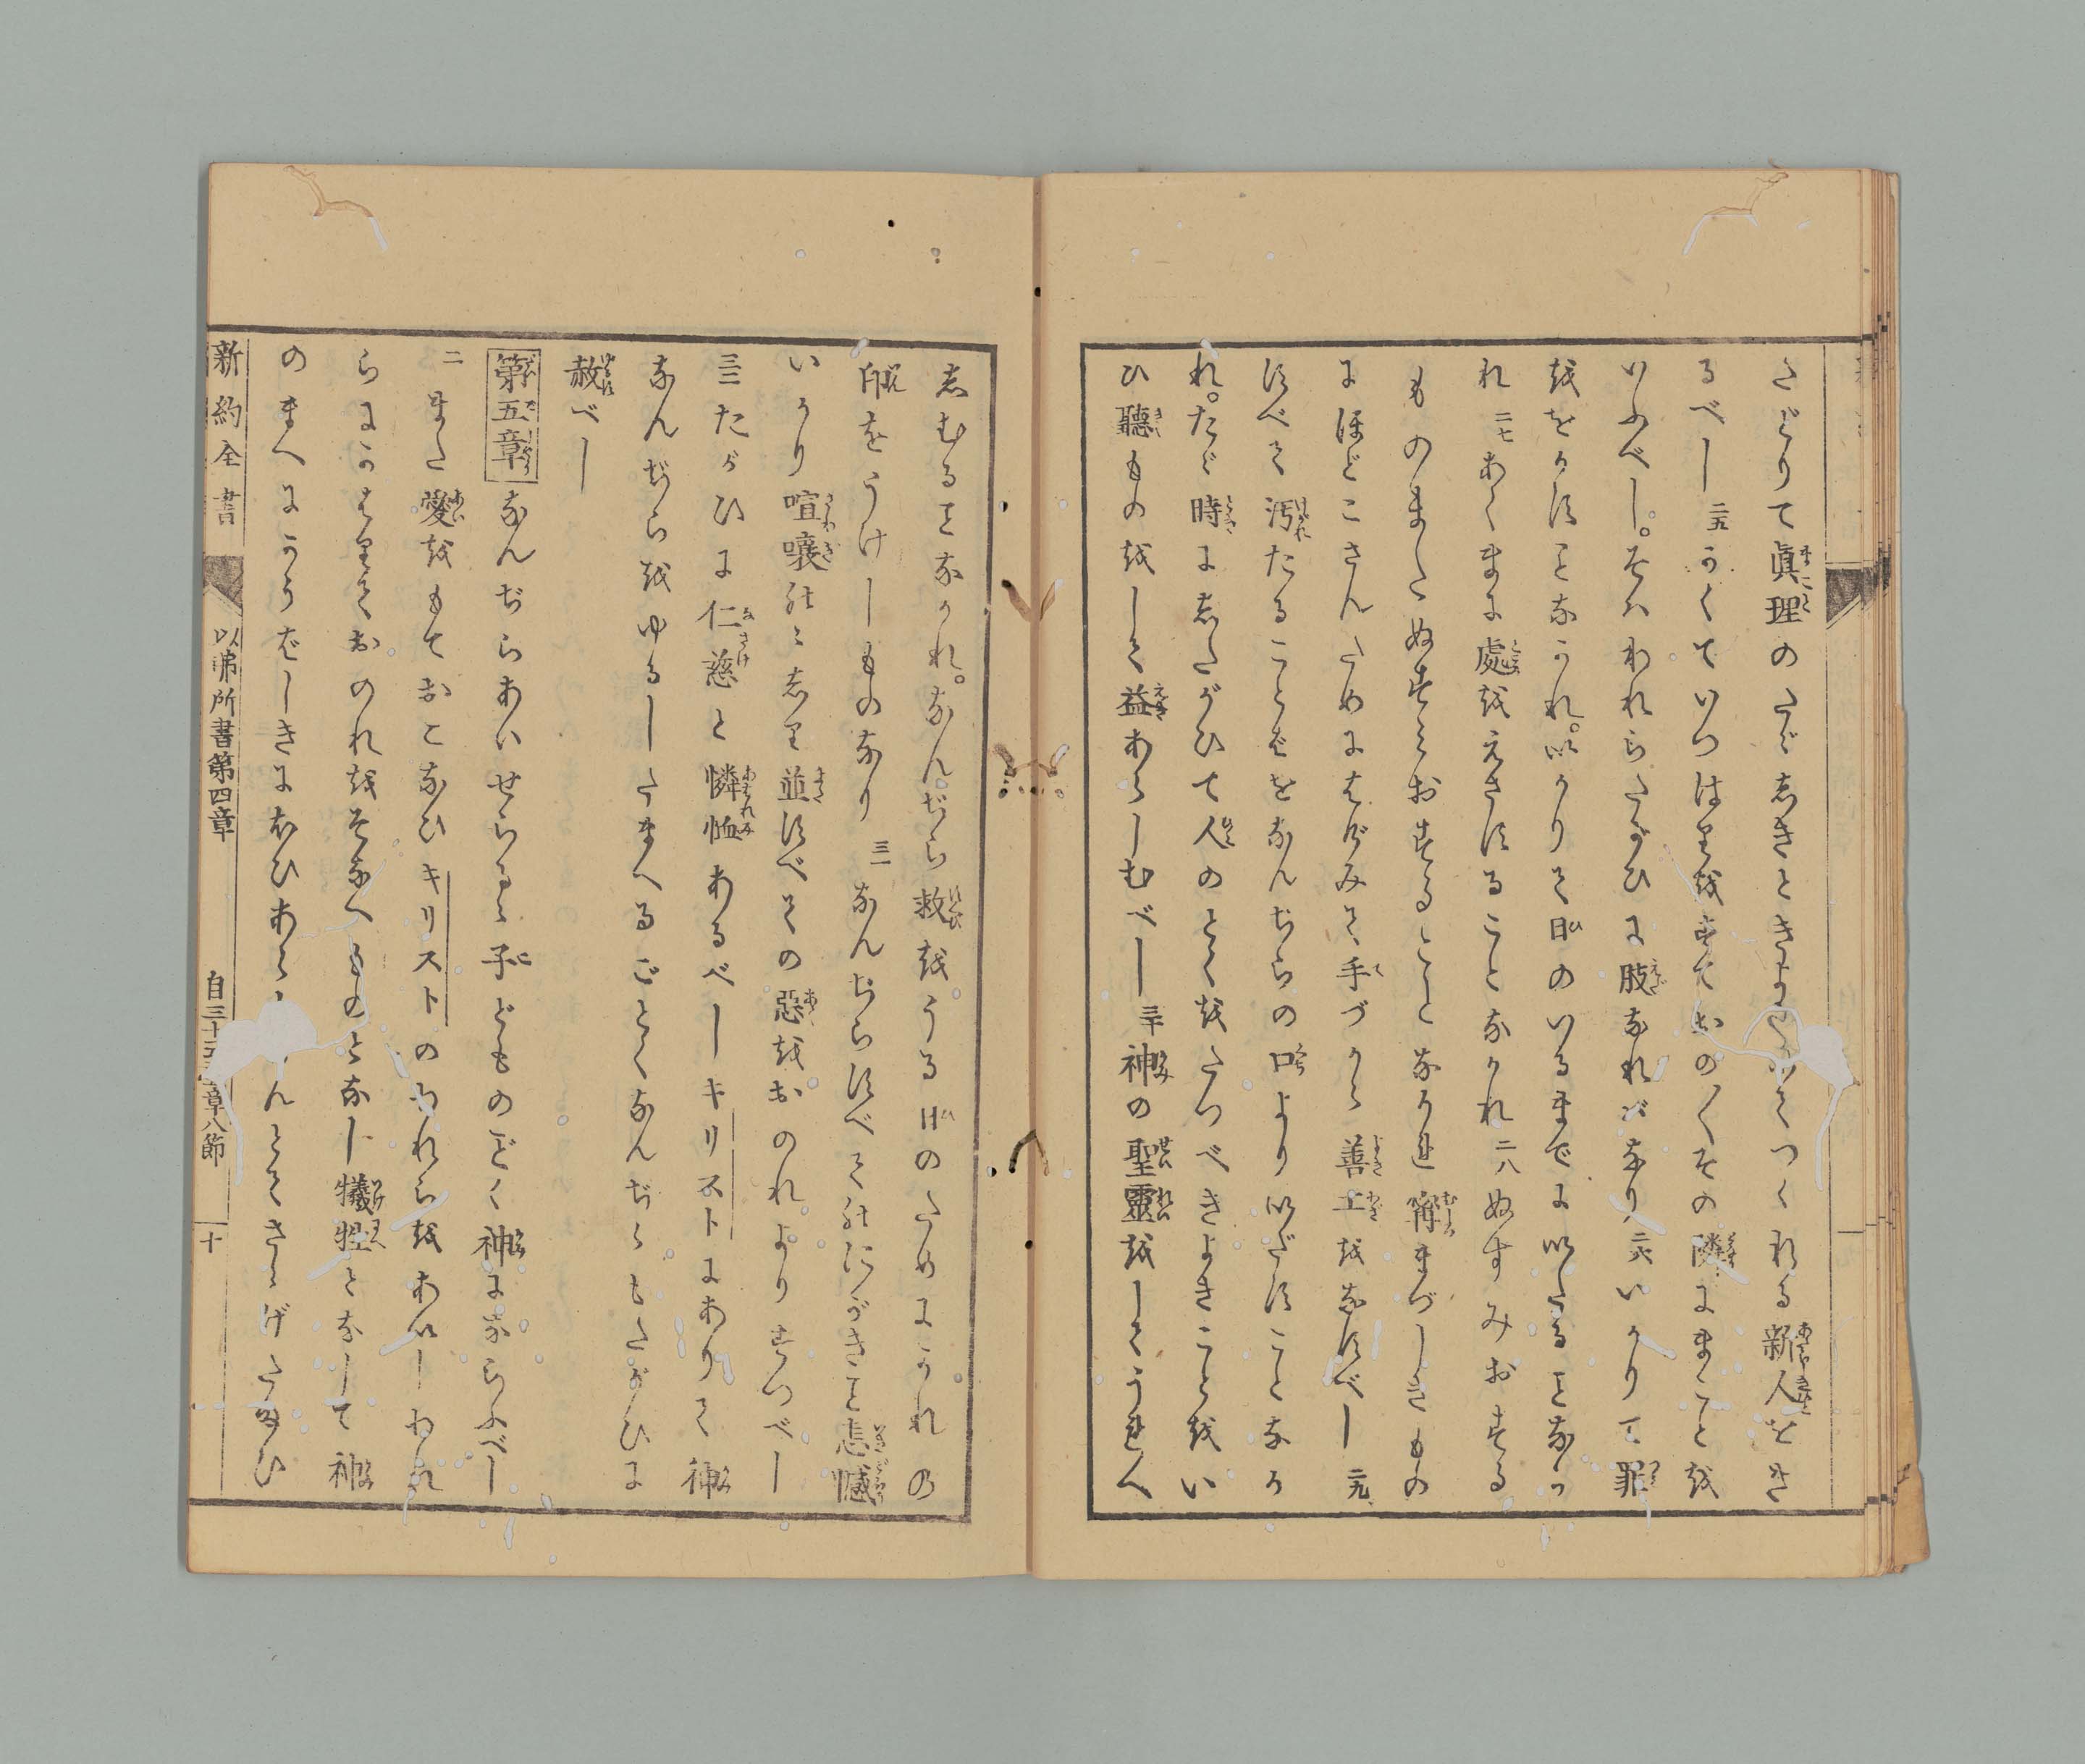 さどりて眞理のたゞしきときよき つくれる新人をき
るべし二五かくていつはりを去ておの〳〵その隣にまことを
いふべし。そはわれらたがひに肢なればなり二六いかりて罪
ををかすことなかれ。いかりて日のいるまでにいたることなか
れ二七あくまに處をえさすることなかれ二八ぬすみおする
ものまたぬすみおすることなかれ寧まづしきもの
にほどこさんためにはげみて、手づから善工をなすべし二九
すべて汚たることばをなんぢらの口よりいだすことなか
れ。たゞ時にしたがひて人のとくをたつべきよきことをい
ひ聽ものをして益あらしむべし三十神の聖靈をしてうれへ
しむることなかれ。なんぢら救をうる日のためにかれの
印をうけしものなり三一なんぢらすべてのにがきこと恚憾
いかり喧嚷のゝしり並すべての惡をおのれよりすつべし
三二たがひに仁慈と憐恤あるべしキリストにありて神
なんぢらをゆるしたまへるごとくなんぢらもたがひに
赦べし
第五章なんぢらあいせらるゝ子どものごとく神にならふべし
二また愛をもておこなひキリストのわれらをあいしわれ
らにかはりておのれをそなへものとなし犧牲となして神
のまへにかうばしきにおひあら んとてさゝげたまひ
新約全書 以弗所書第四章 自三十 章八節 十